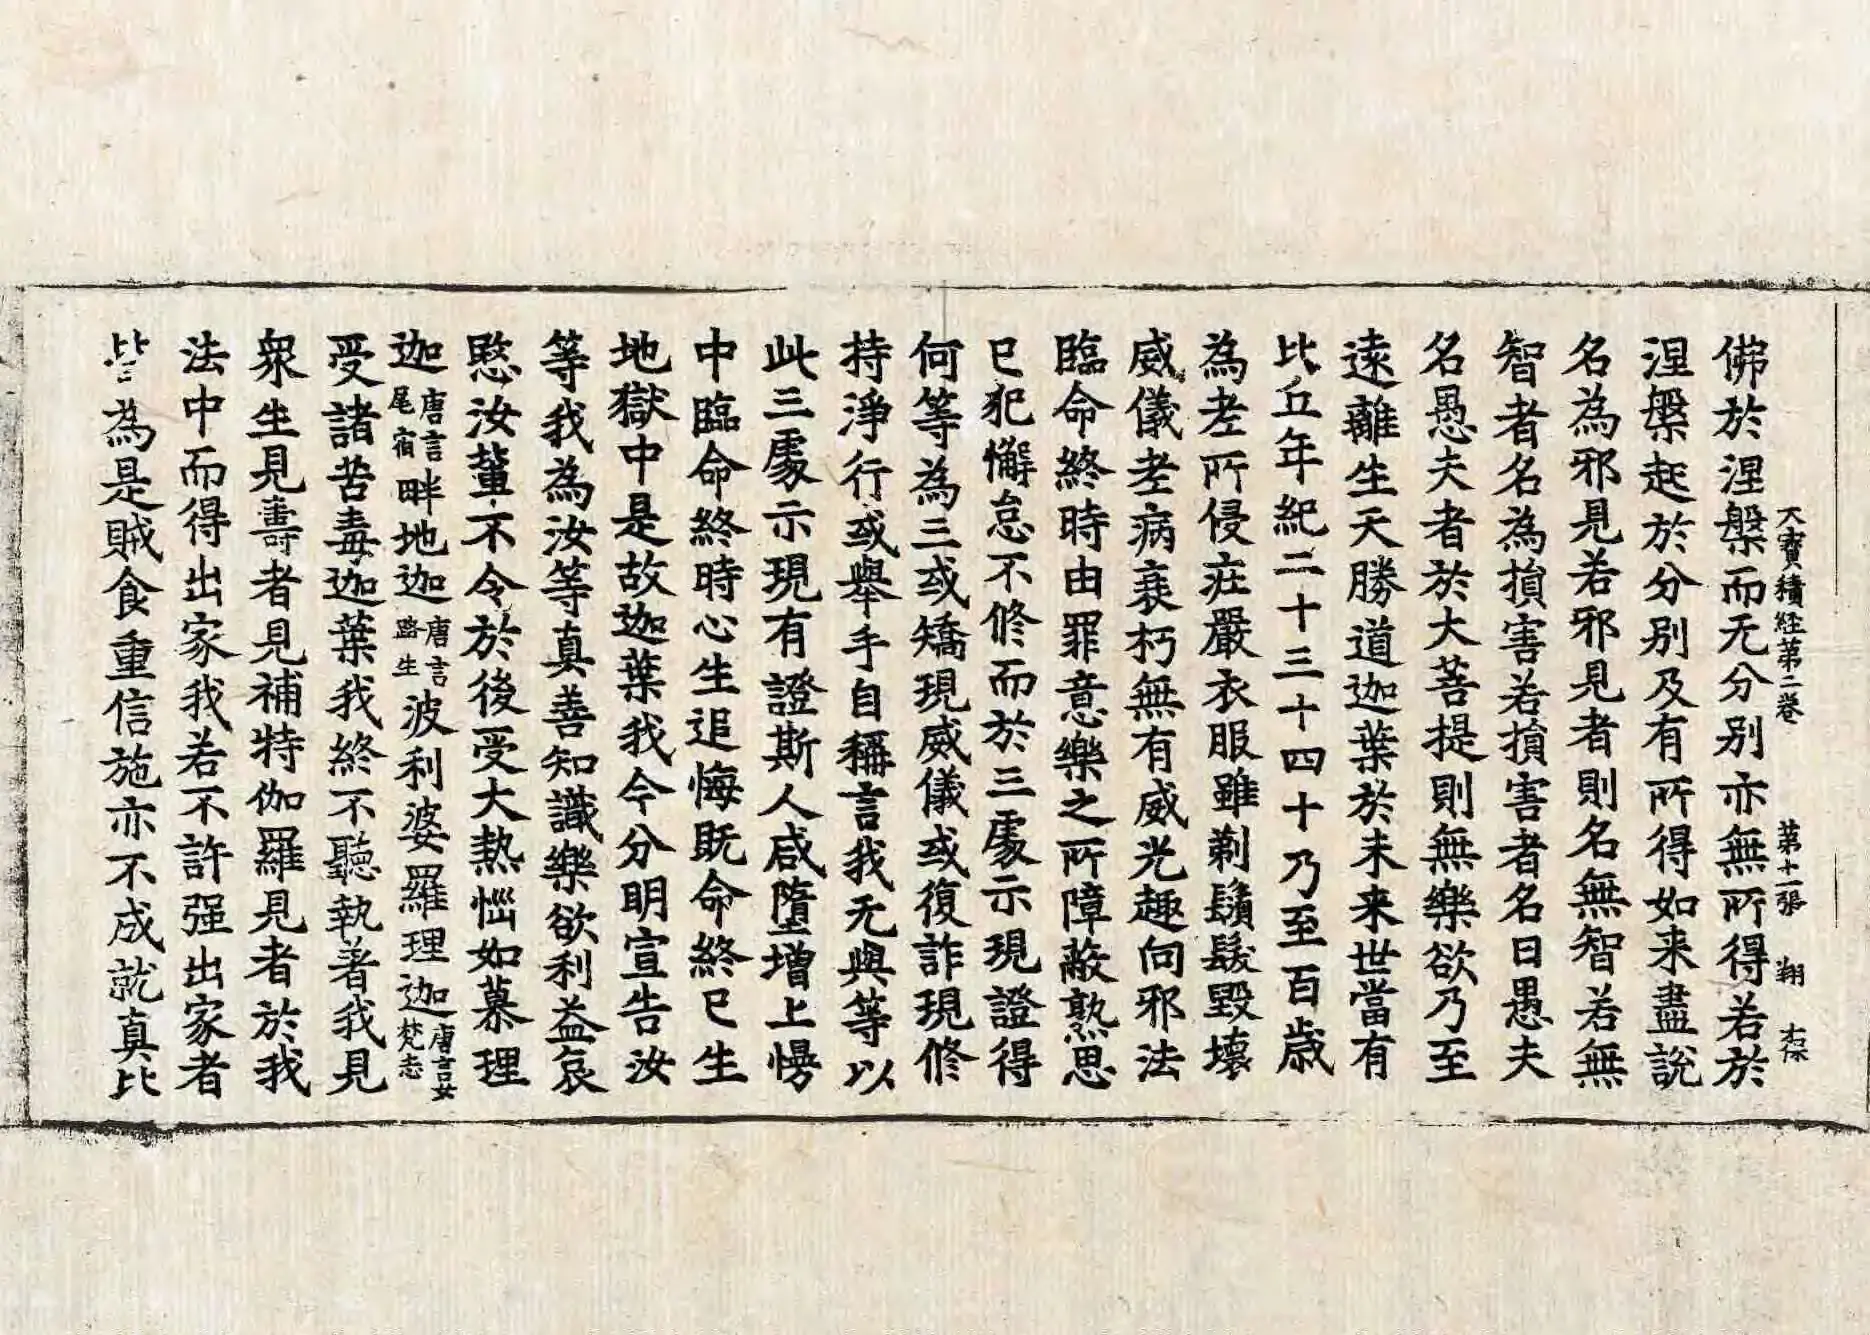 大寶積經第二卷 第十二張 翔
佛於涅槃而无分別亦無所得若於
涅槃起於分別及有所得如来盡說
名為邪見若邪見者則名無智若無
智者名為損害若損害者名曰愚夫
名愚夫者於大菩提則無樂欲乃至
遠離生天勝道迦葉於未来世當有
比丘年紀二十三十四十乃至百歳
為老所侵庄嚴衣服雖剃鬚髮毀壞
威儀老病衰朽無有威光趣向邪法
臨命終時由罪意樂之所障蔽熟思
已犯懈怠不修而於三處示現證得
何等為三或矯現威儀或復詐現修
持淨行或舉手自稱言我无與等以
此三處示現有證斯人咸墮增上慢
中臨命終時心生追悔既命終已生
地獄中是故迦葉我今分明宣告汝
等我為汝等真善知識樂欲利益哀
愍汝輩不令於後受大熱惱如慕理
迦唐言尾宿畔地迦唐言路生波利婆羅理迦唐言女梵志
受諸苦毒迦葉我終不聽執著我見
衆生見壽者見補特伽羅見者於我
法中而得出家我若不許强出家者
皆為是賊食重信施亦不成就真比